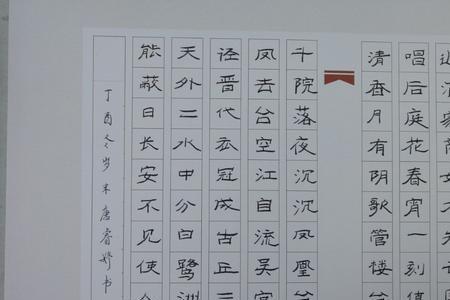 近酒家商女不
唱后庭花春宵一刻值
清香月有阴歌管楼台
千院落夜沉沉凤凰台
凤去台空江自流吴宫
径晋代衣冠成古丘三
天外二水中分白鹭洲
能蔽日长安不见使人
丁酉冬岁末唐睿书